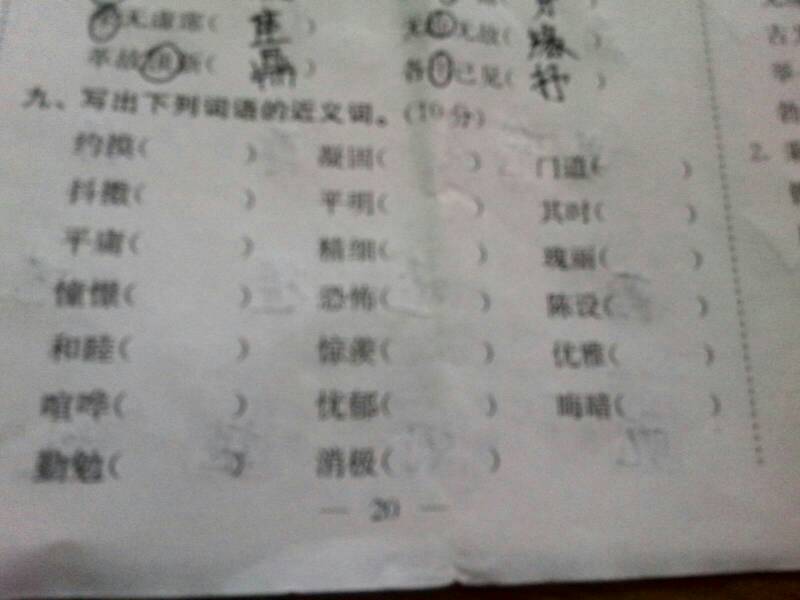 无虚席( 座 ) 无 无故( 缘 )
革故 新( ) 各 已见( 抒 )
九、写出下列词语的近义词。(10分)
约摸( ) 凝固( ) 门道( )
抖擞( ) 平明( ) 其时( )
平庸( ) 精细( ) 瑰丽( )
憧憬( ) 恐怖( ) 陈设( )
和睦( ) 惊羡( ) 优雅( )
喧哗( ) 忧郁( ) 晦暗( )
勤勉( ) 消极( )
— 20 —
2.